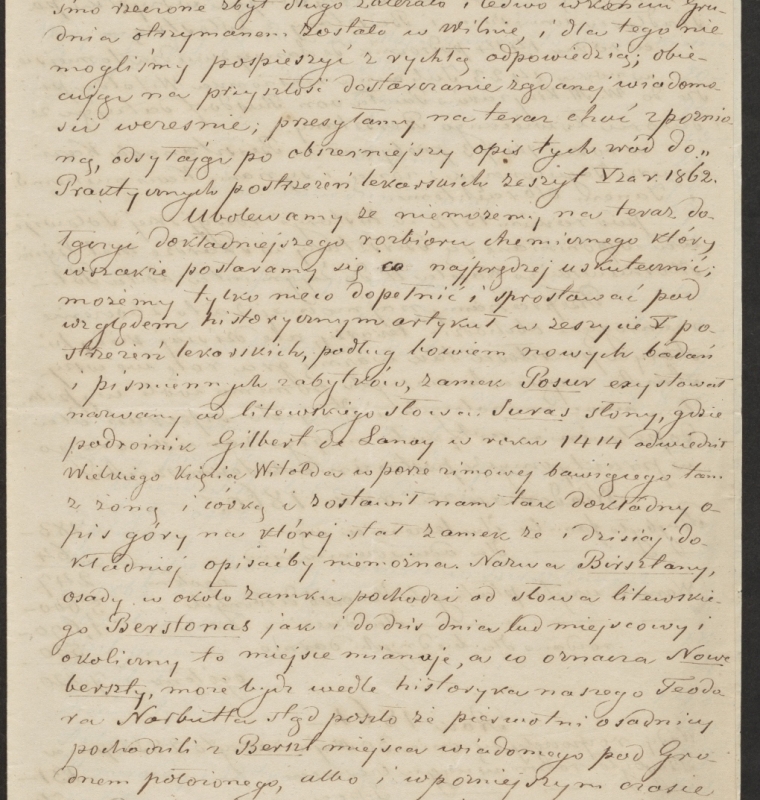 śmo rzeczone zbyt długo zaległo i ledwo w końcu Gru-
dnia otrzymanem zostało w Wilnie, i dla tego nie
mogliśmy pospieszyć z rychłą odpowiedzią; obie-
cując na przyszłość dostarczanie żądanej wiadomo-
ści wcześnie; przesyłamy na teraz choć zpóźnio-
ną, odsyłając po obszerniejszy opis tych wód do „
Praktycznych postrzeżeń lekarskich zeszyt V za r. 1862.
Ubolewamy że niemożemy na teraz do-
łączyć dokładniejszego rozbioru chemicznego który
wszakże postaramy się co najprędzej uskutecznić;
możemy tylko nieco dopełnić i sprostować pod
względem historycznym artykuł w zeszycie V po-
strzeżeń lekarskich, podług bowiem nowych badań
i piśmiennych zabytków, zamek Posur exystował
nazwany od litewskiego słowa Suras słony, gdzie
podróżnik Gilbert de Lanoy w roku 1414 odwiedził
Wielkiego Księcia Witolda w porze zimowej bawiącego tam
z żoną i córką i zostawił nam tak dokładny o-
pis góry na której stał zamek że i dzisiaj do-
kładniej opisaćby niemożna. Nazwa Birsztany,
osady w około zamku pochodzi od słowa litewskie-
go Berstonas jak i dodziś dnia lud miejscowy i
okoliczny to miejsce mianuje, a co oznacza Nowe
berszty, może bydź wedle historyka naszego Teodo-
ra Narbutta ztąd poszło że pierwotni osadnicy
pochodzili z Berszt miejsca wiadomego pod Gro-
dnem położonego, albo i w poźniejszym czasie